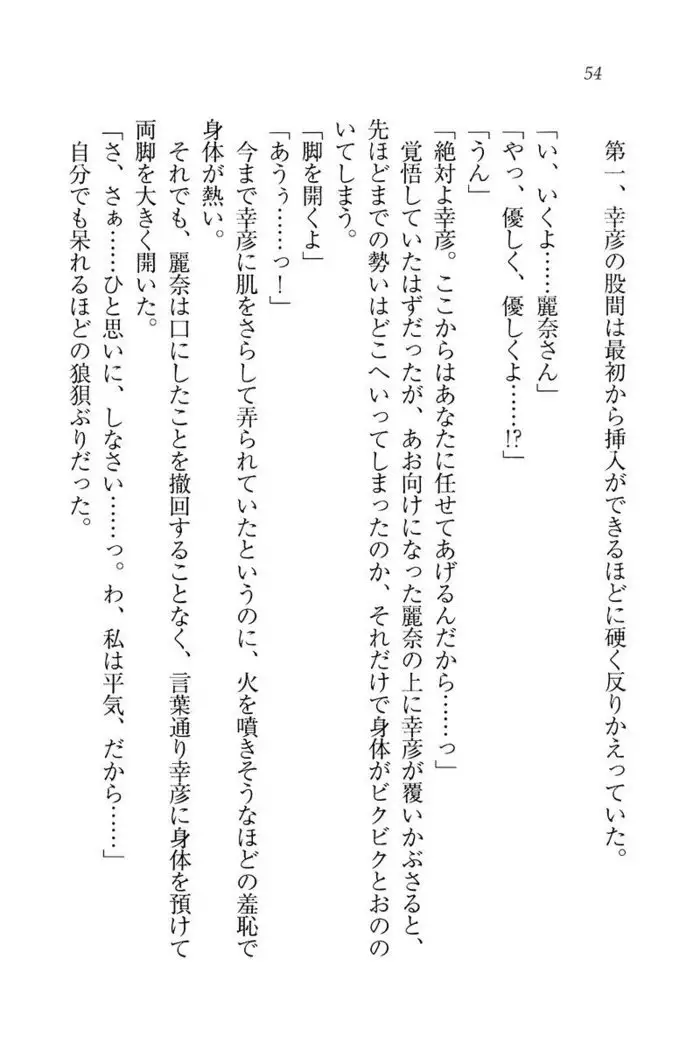 54
第一、幸彦の股間は最初から挿入ができるほどに硬く反りかえっていた。
「い、いくよ……麗奈さん」
「やっ、優しく、優しくよ……!?」
「うん」
「絶対よ幸彦。ここからはあなたに任せてあげるんだから……っ」
覚悟していたはずだったが、あお向けになった麗奈の上に幸彦が覆いかぶさると、
先ほどまでの勢いはどこへいってしまったのか、それだけで身体がビクビクとおのの
いてしまう。
「脚を開くよ」
「あうぅ……っ！」
今まで幸彦に肌をさらして弄られていたというのに、火を噴きそうなほどの羞恥で
身体が熱い。
それでも、麗奈は口にしたことを撤回することなく、言葉通り幸彦に身体を預けて
両脚を大きく開いた。
「さ、さぁ……ひと思いに、しなさい……っ。わ、私は平気、だから……」
自分でも呆れるほどの狼狽ぶりだった。